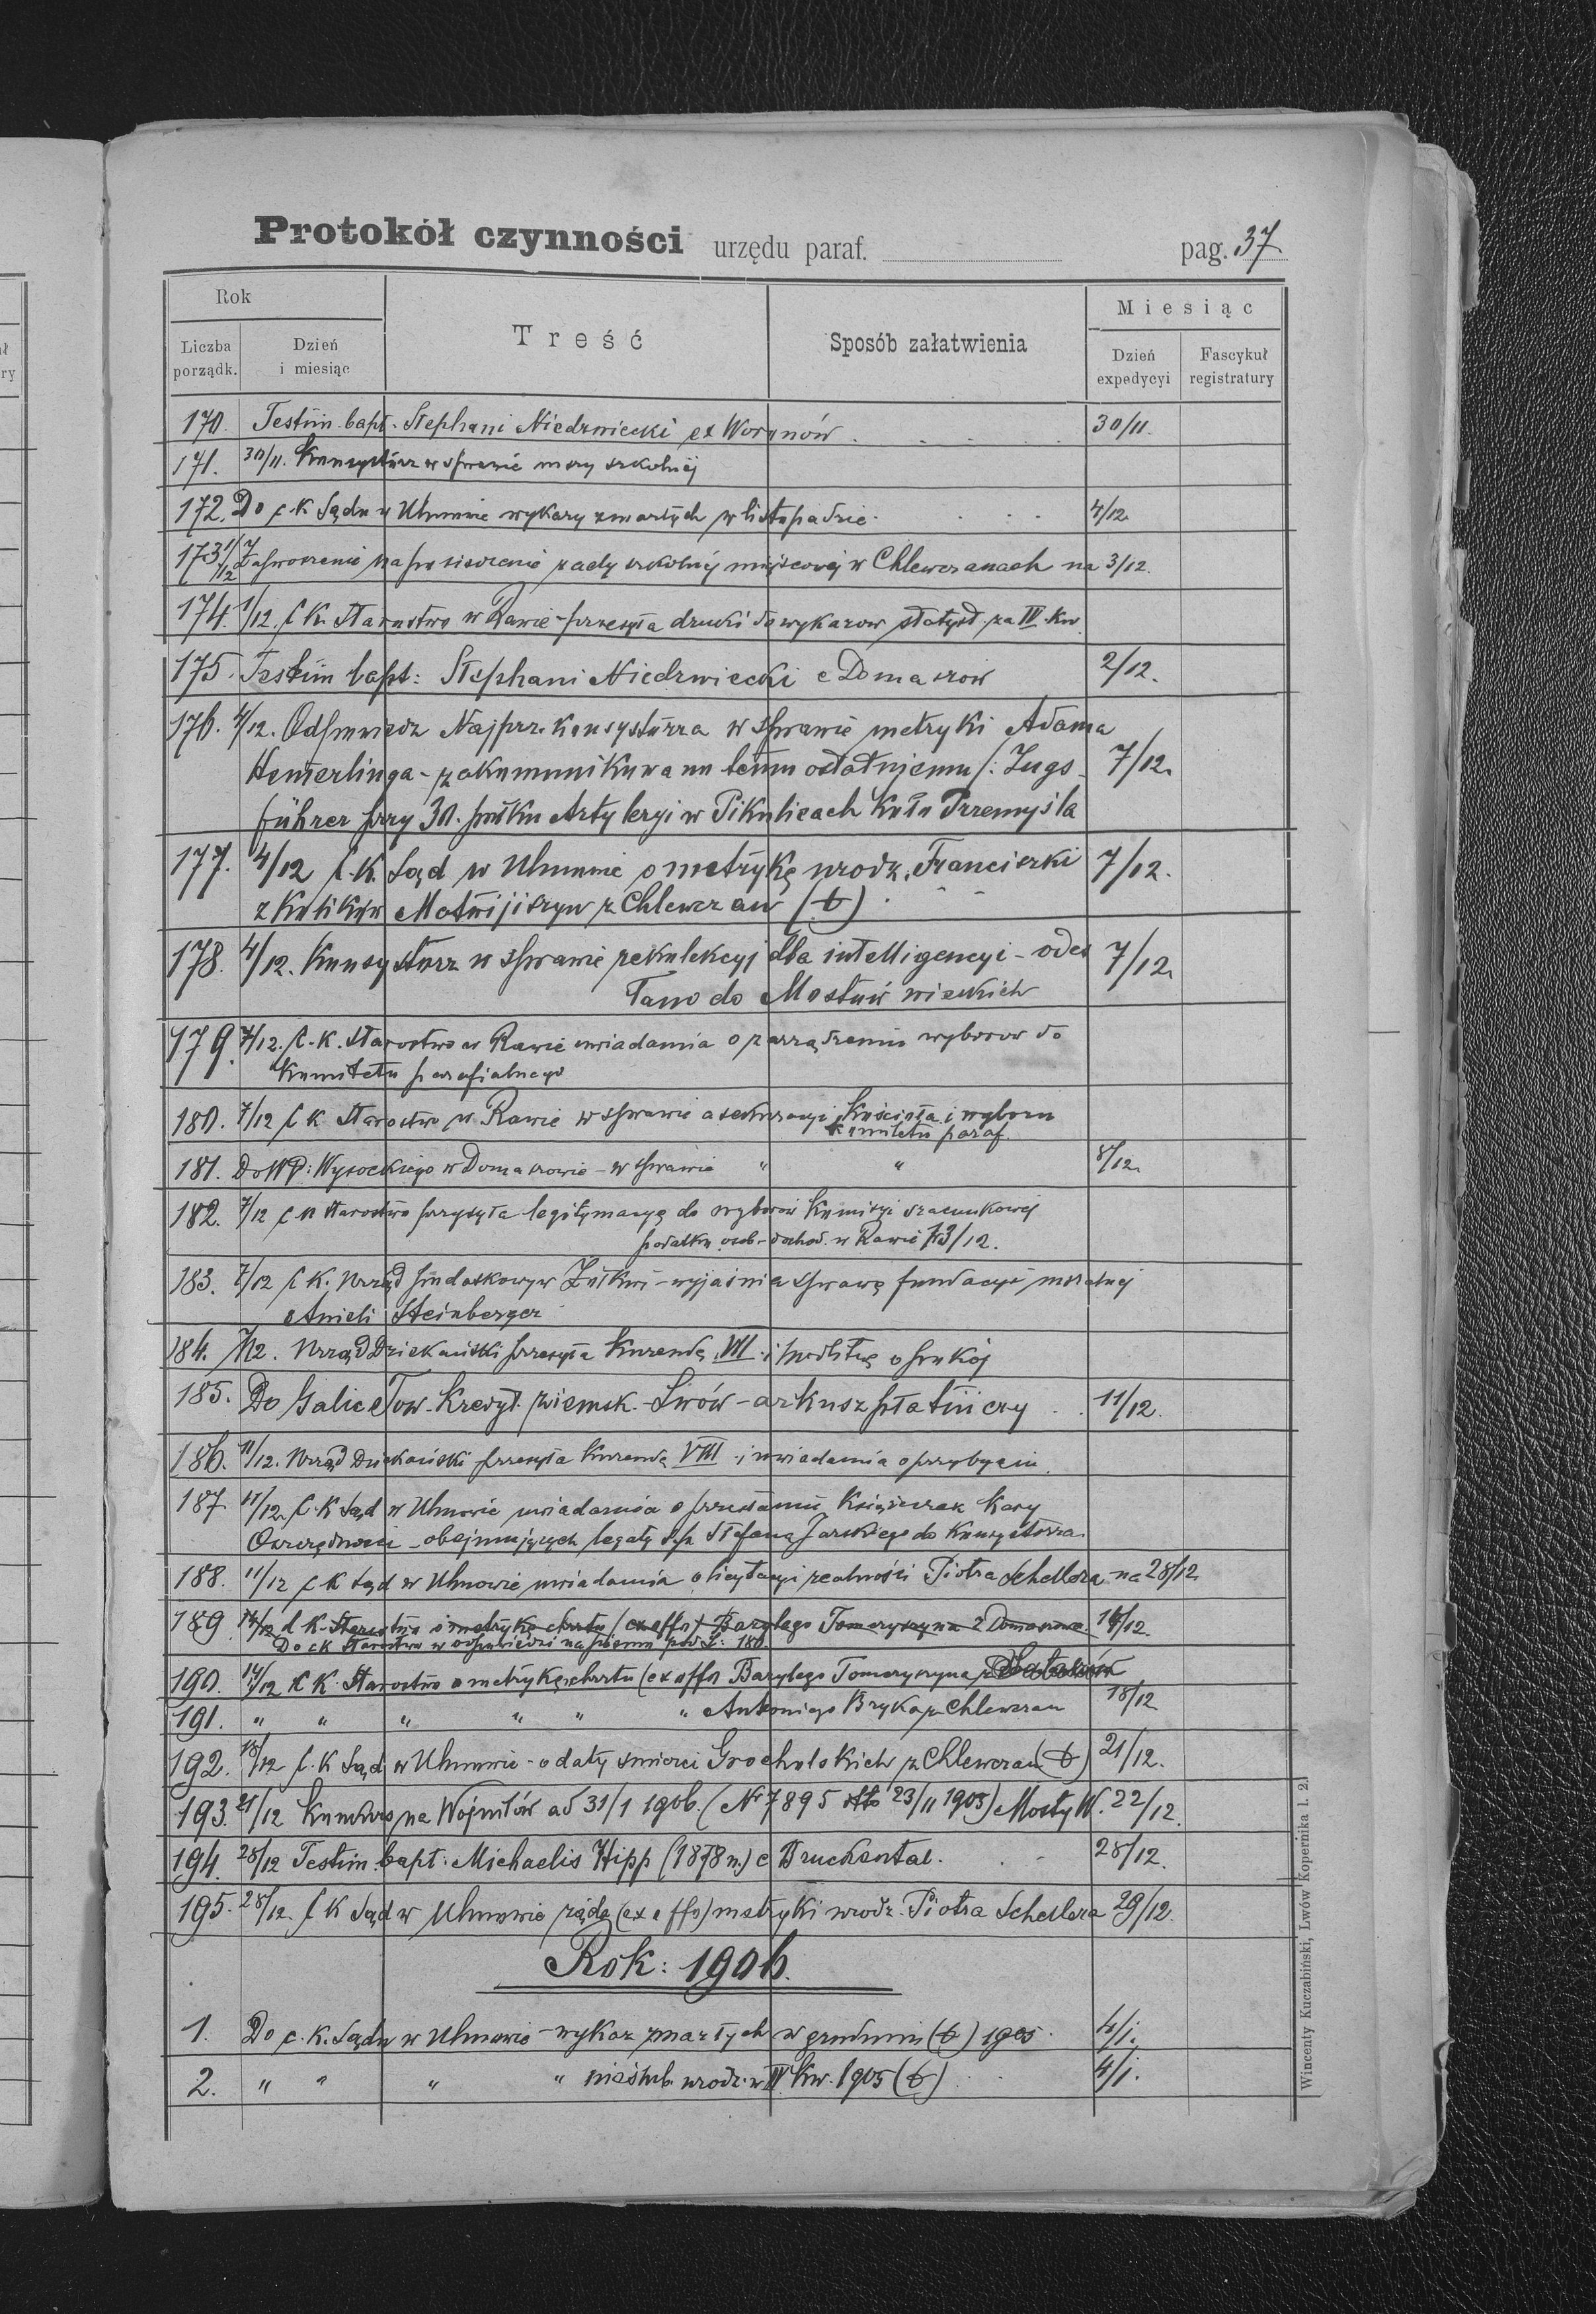 Protokół czynności urzędu paraf. pag. 37
Rok
Liczba porządk.
Dzień i miesiąc
Treść
Sposób załatwienia
Miesiąc
Dzień expedycyi
Fascykuł registratury
170. Testim. bapt. Stephani Niedzwiecki ex Woronów . . . . 30/11.
171. 30/11. Konsystorz w sprawie mszy szkolnej
172. Do c. k. Sądu w Uhnowie wykazy zmarłych w listopadzie . . . 4/12.
173. 1/12 Zaproszenie na posiedzenie rady szkolnej miejscowej w Chlewczanach na 3/12.
174. 1/12. C. K. Starostwo w Rawie – przesyła druki do wykazow statyst. za IV. kw.
175. Testim bapt: Stephani Niedzwiecki e Domaszow 2/12.
176. 4/12. Odpowiedz Najprz. konsystorza w sprawie metryki Adama
Hemerlinga – zakomunikowano temu ostatniemu /: Zugs- 7/12.
führer przy 30. pułku Artyleryi w Pikulicach koło Przemyśla
177. 4/12 C. K. Sąd w Uhnowie o metrykę urodz. Franciszki 7/12.
z Kulików Motwijiszyn z Chlewczan (t)
178. 4/12. Konsystorz w sprawie rekolekcyj dla intelligencyi – odes 7/12.
łano do Mostów wielkich
179. 7/12. C. K. Starostwo w Rawie uwiadamia o zarządzeniu wyborow do
Komitetu parafialnego
180. 7/12 C K Starostwo w Rawie w sprawie asekuracyi Kościoła i wyboru
komitetu paraf.
181. Do WP: Wysockiego w Domaszowie – w sprawie " " 8/12.
182. 7/12 C K Starostwo przysyła legitymacyę do wyborów Komisyi szacunkowej
podatku osob.-dochod. w Rawie 13/12.
183. 7/12 C. K. Urząd podatkowy w Żółkwi – wyjaśnia sprawę fundacyi mszalnej
Anieli Steinberger
184. 7/12. Urząd Dziekański przesyła Kurendę VII. i modlitwę o pokój
185. Do Galic Tow. Kredyt. ziemsk. – Lwów – arkusz płatniczy . . 11/12.
186. 11/12. Urząd Dziekański przesyła Kurendę VIII i uwiadamia o przybyciu.
187. 11/12. C. K Sąd w Uhnowie uwiadamia o przesłaniu Książeczek Kasy
Oszczędności – obejmujących legaty ś.p. Stefana Jarskiego do Konsystorza.
188. 11/12 C K Sąd w Uhnowie uwiadamia o licytacyi realności Piotra Schellera na 28/12
189. 14/12 C. K. Starostwo o metrykę chrztu (ex offo) Bazylego Tomczyszyna z Domaszowa 14/12.
Do ck Starostwa w odpowiedzi na pismo pod L: 180.
190. 14/12 C K. Starostwo o metrykę chrztu (ex offo Bazylego Tomczyszyna z
191. " " " " " " Antoniego Bryka z Chlewczan 18/12
192. 18/12 C. K Sąd w Uhnowie – o daty śmierci Grocholskich z Chlewczan (t) 21/12.
193. 21/12 Konkurs na Wojsłów ad 31/1 1906. (N 7895 dto 23/11 1905) Mosty W. 22/12.
194. 28/12 Testim. bapt: Michaelis Hipp (1878 n.) e Bruckental. . . 28/12.
195. 28/12. C K Sąd w Uhnowie żąda (ex offo) metryki urodz. Piotra Schellera 29/12.
Rok: 1906.
1. Do c. k. Sądu w Uhnowie – wykaz zmarłych w grudniu (t) 1905. 4/1.
2. " " " " nieślub. urodz. w IV kw. 1905 (t) . . 4/1.
Wincenty Kuczabiński, Lwów Kopernika l. 2.